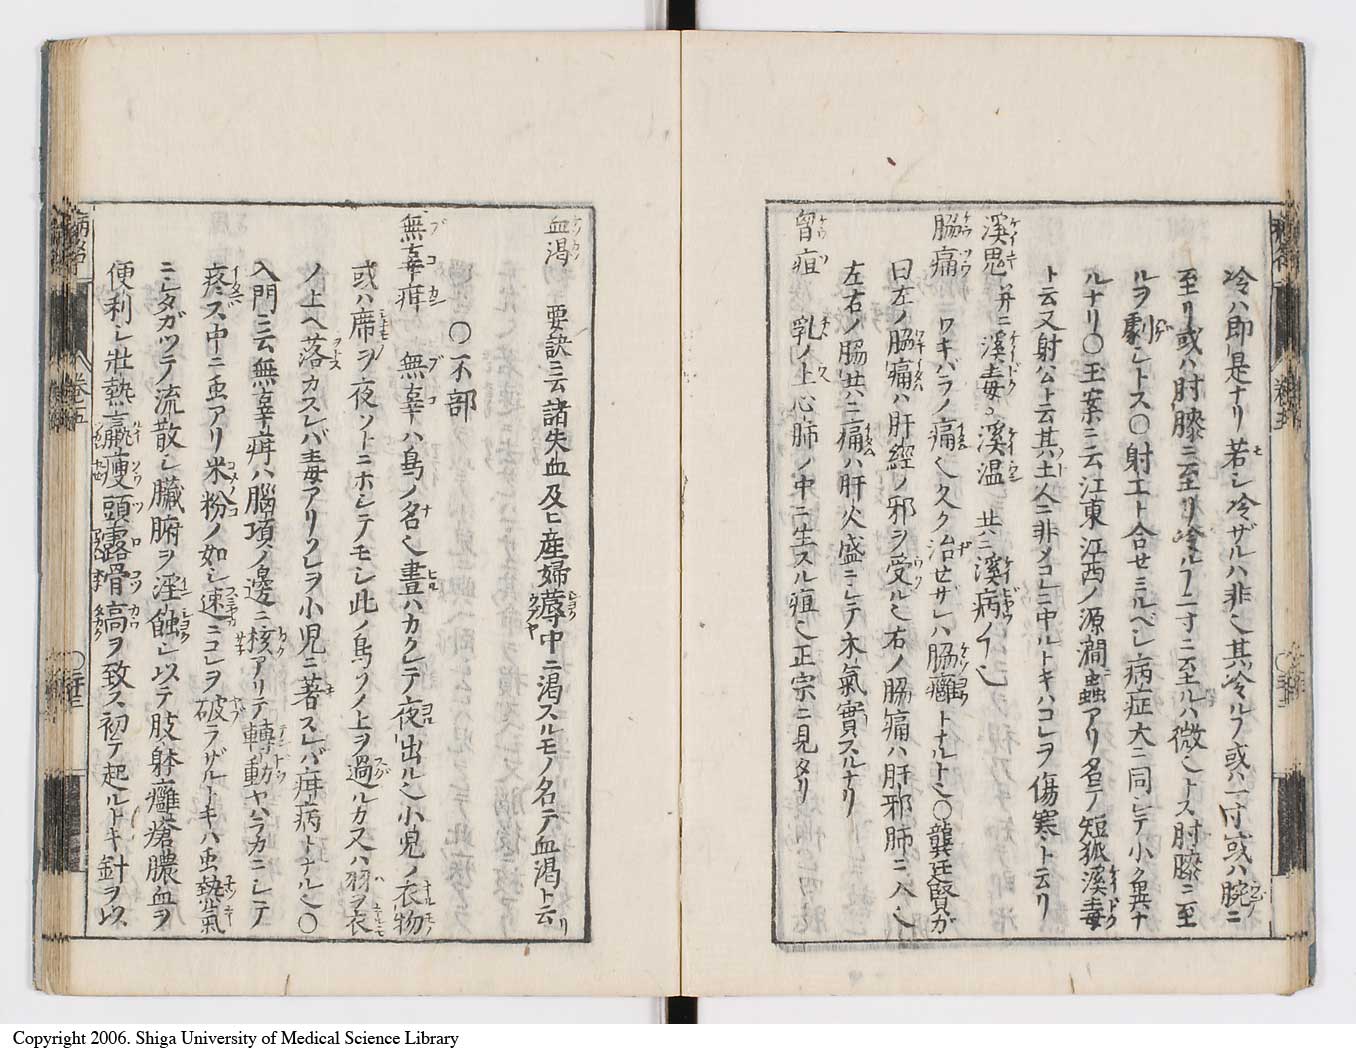 冷ハ即是ナリ若シ冷ザルハ非也其冷ルヿ或ハ一寸或ハ腕ニ
至リ或ハ肘膝ニ至リ冷ルヿ一寸ニ至ルハ微也トス肘膝ニ至
ルヲ劇シトス〇射工ト合セミルベシ病症大ニ同シテ小ク異ナ
ルナリ〇玉案ニ云江東江西ノ源澗蟲アリ名テ短狐溪毒
ト云又射公ト云其土人ニ非メコレニ中ルトキハコレヲ傷寒ト云リ
溪鬼并ニ溪毒溪温 共ニ溪病ノヿ也
脇痛 ワキバラノ痛也久ク治セザレハ脇癰トナルト也〇龔廷賢ガ
曰左ノ脇痛ハ肝經ノ邪ヲ受ル也右ノ脇痛ハ肝邪肺ニ入也
左右ノ脇共ニ痛ハ肝火盛ニシテ木氣實スルナリ
胷疽 乳ノ上心肺ノ中ニ生スル疽也正宗ニ見タリ
血渇 要訣ニ云諸失血及ヒ産婦蓐中ニ渇スルモノ名テ血渇ト云リ
〇不部
無辜疳 無辜ハ鳥ノ名也晝ハカクレテ夜出ル也小兒ノ衣物
或ハ席ヲ夜ソトニホシテモシ此ノ鳥ソノ上ヲ過ルカ又ハ羽ヲ衣
ノ上ヘ落カスレバ毒アリソレヲ小児ニ著スレバ疳病トナル也〇
入門ニ云無辜疳ハ腦項ノ邊ニ核アリテ轉動ヤハラカニシテ
疼ズ中ニ虫アリ米粉ノ如シ速ニコレヲ破ラザルトキハ虫熱氣
ニシタガツテ流散シ臟腑ヲ淫蝕シ以テ肢躰癰瘡膿血ヲ
便利シ壮熱羸痩頭露骨高ヲ致ス初テ起ルトキ針ヲ以
病名
卷五
Copyright 2006. Shiga University of Medical Science Library